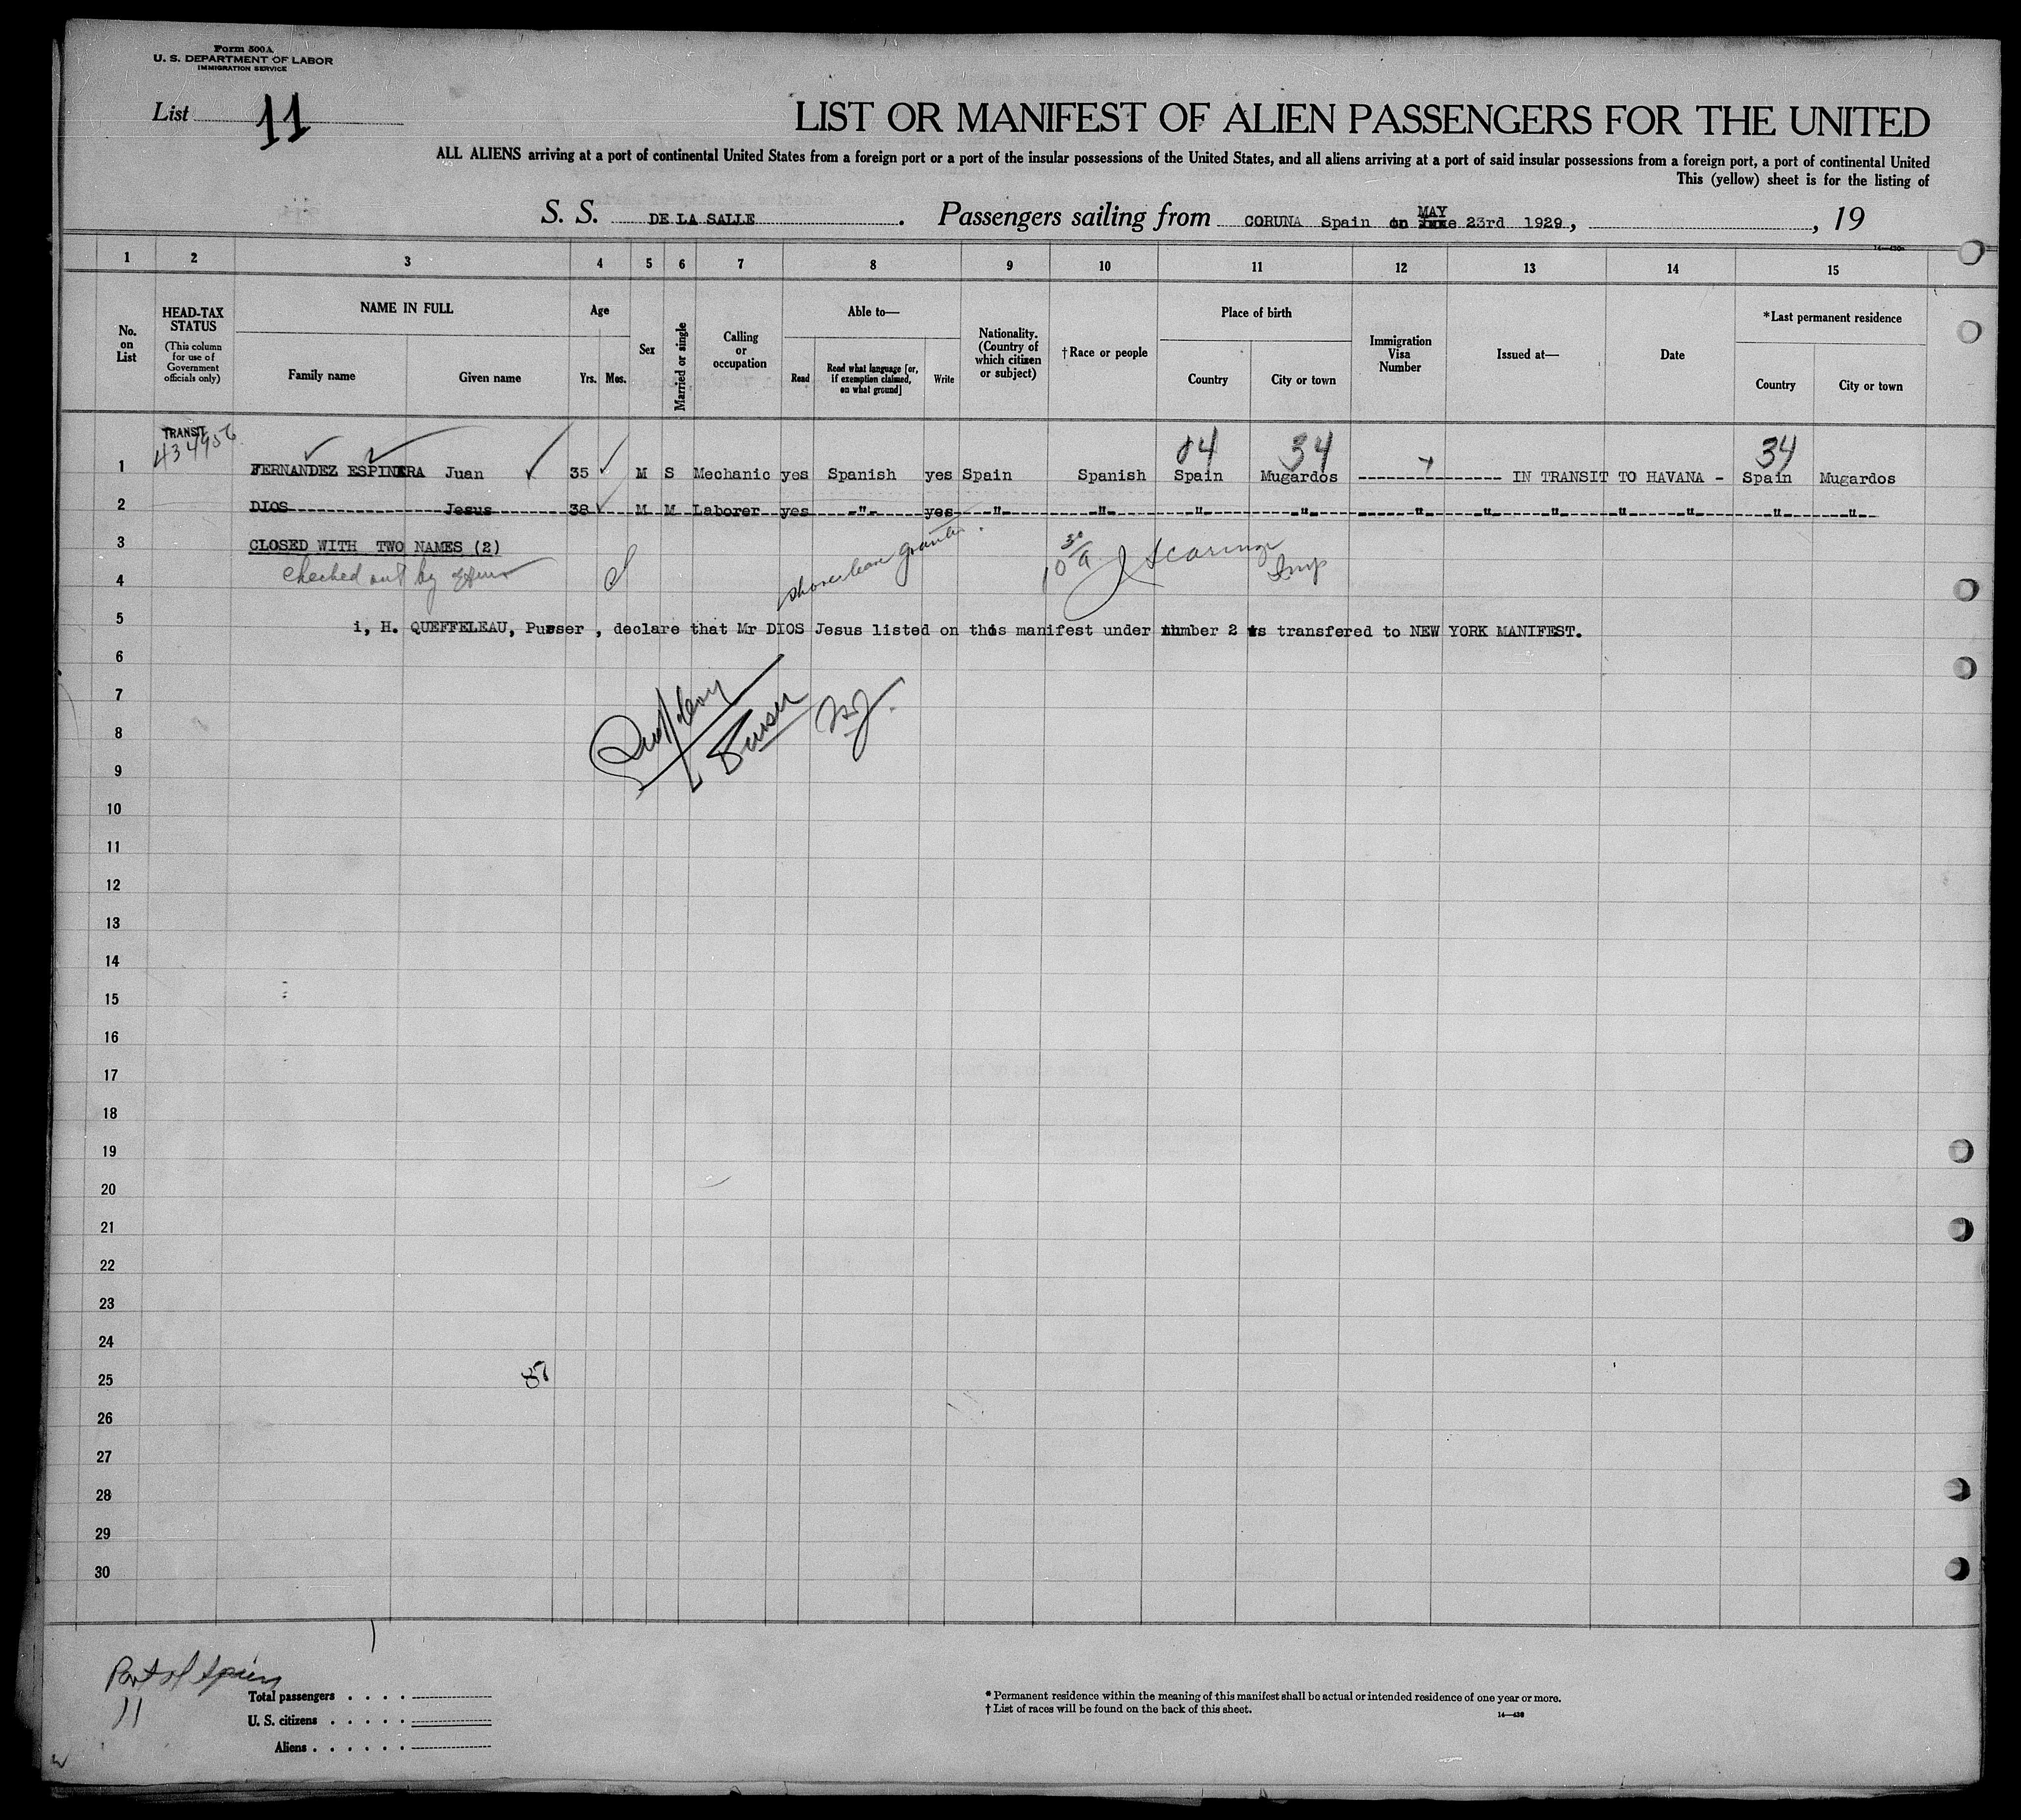 Form 500A
U. S. DEPARTMENT OF LABOR
IMMIGRATION SERVICE
List 11
LIST OR MANIFEST OF ALIEN PASSENGERS FOR THE UNITED
ALL ALIENS arriving at a port of continental United States from a foreign port or a port of the insular possessions of the United States, and all aliens arriving at a port of said insular possessions from a foreign port, a port of continental United
This (yellow) sheet is for the listing of
S. S. DE LA SALLE . Passengers sailing from CORUNA Spain on MAY 23rd 1929, , 19
1 2 3 4 5 6 7 8 9 10 11 12 13 14 15
No. on List
HEAD-TAX STATUS
(This column for use of Government officials only)
NAME IN FULL
Family name Given name
Age
Yrs. Mos.
Sex
Married or single
Calling or occupation
Able to—
Read
Read what language [or, if exemption claimed, on what ground]
Write
Nationality. (Country of which citizen or subject)
†Race or people
Place of birth
Country City or town
Immigration Visa Number
Issued at—
Date
*Last permanent residence
Country City or town
TRANSIT
434956 04 34 34
1 FERNANDEZ ESPINERA Juan 35 M S Mechanic yes Spanish yes Spain Spanish Spain Mugardos ---------------- IN TRANSIT TO HAVANA - Spain Mugardos
2 DIOS Jesus 38 M M Laborer yes -"- yes -"- -"- -"- -"- -"- -"- -"- -"- -"- -"- -"-
3 CLOSED WITH TWO NAMES (2)
4 checked out by
10 30/a
Insp
5 i, H. QUEFFELEAU, Purser , declare that Mr DIOS Jesus listed on this manifest under number 2 is transfered to NEW YORK MANIFEST.
6
7
Purser
8
9
10
11
12
13
14
15
16
17
18
19
20
21
22
23
24
25 87
26
27
28
29
30
Port of Spain
11
Total passengers . . . .
U. S. citizens . . . . .
Aliens . . . . . .
* Permanent residence within the meaning of this manifest shall be actual or intended residence of one year or more.
† List of races will be found on the back of this sheet.
14—430